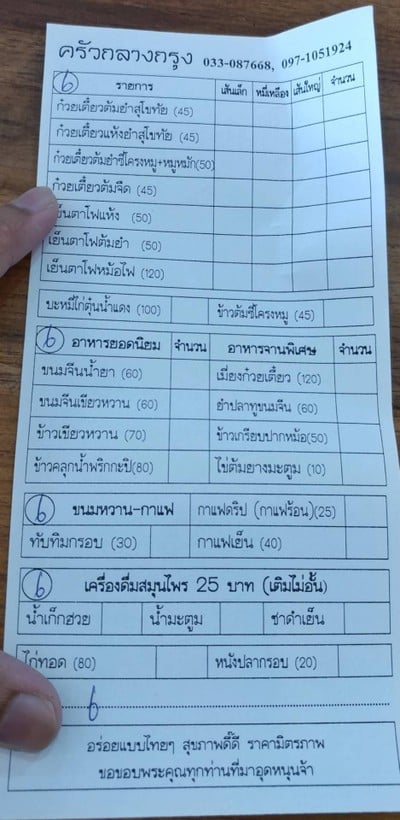 ครัวกลางกรุง 033-087668, 097-1051924
6 รายการ เส้นเล็ก หมี่เหลือง เส้นใหญ่ จำนวน
ก๋วยเตี๋ยวต้มยำสุโขทัย (45)
ก๋วยเตี๋ยวแห้งยำสุโขทัย (45)
ก๋วยเตี๋ยวต้มยำซี่โครงหมู+หมูหมัก(50)
ก๋วยเตี๋ยวต้มจืด (45)
เย็นตาโฟแห้ง (50)
เย็นตาโฟต้มยำ (50)
เย็นตาโฟหม้อไฟ (120)
บะหมี่ไก่ตุ๋นน้ำแดง (100) ข้าวต้มซี่โครงหมู (45)
6 อาหารยอดนิยม จำนวน อาหารจานพิเศษ จำนวน
ขนมจีนน้ำยา (60) เมี่ยงก๋วยเตี๋ยว (120)
ขนมจีนเขียวหวาน (60) ยำปลาทูขนมจีน (60)
ข้าวเขียวหวาน (70) ข้าวเกรียบปากหม้อ(50)
ข้าวคลุกน้ำพริกกะปิ(80) ไข่ต้มยางมะตูม (10)
6 ขนมหวาน-กาแฟ กาแฟดริป (กาแฟร้อน)(25)
ทับทิมกรอบ (30) กาแฟเย็น (40)
6 เครื่องดื่มสมุนไพร 25 บาท (เติมไม่อั้น)
น้ำเก็กฮวย น้ำมะตูม ชาดำเย็น
ไก่ทอด (80) หนังปลากรอบ (20)
6
อร่อยแบบไทยๆ สุขภาพดี๊ดี ราคามิตรภาพ
ขอขอบพระคุณทุกท่านที่มาอุดหนุนจ้า